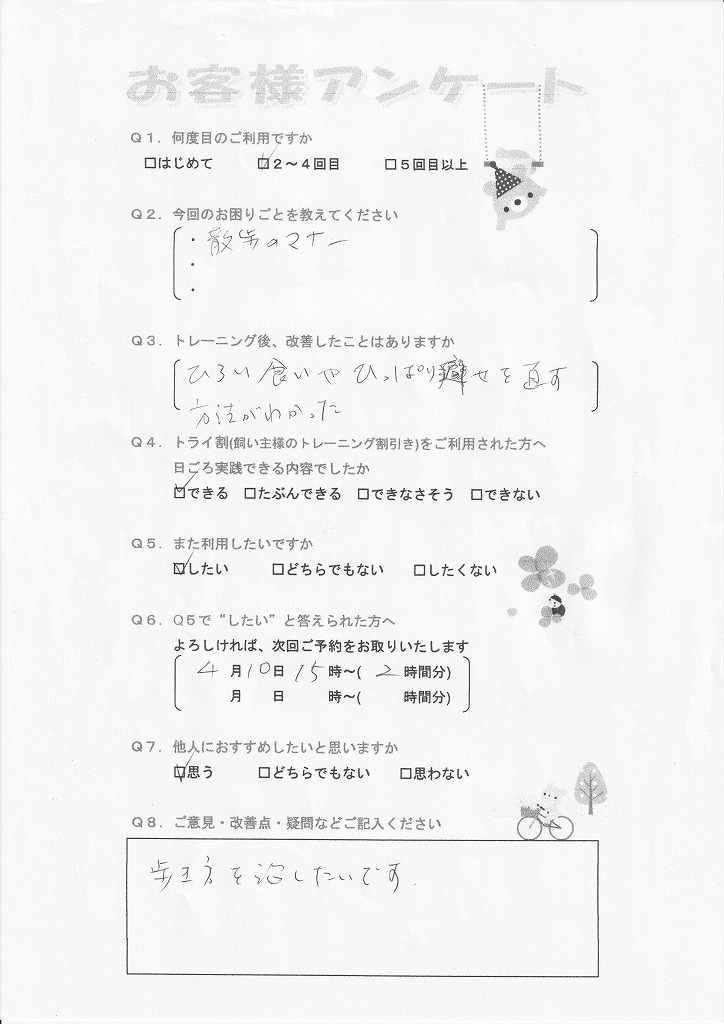 お客様アンケート
Q1．何度目のご利用ですか
□はじめて ☑2～4回目 □5回目以上
Q2．今回のお困りごとを教えてください
・散歩のマナー
・
・
Q3．トレーニング後、改善したことはありますか
ひろい食いやひっぱり癖せを直す
方法がわかった
Q4．トライ割(飼い主様のトレーニング割引き)をご利用された方へ
日ごろ実践できる内容でしたか
☑できる □たぶんできる □できなさそう □できない
Q5．また利用したいですか
☑したい □どちらでもない □したくない
Q6．Q5で“したい”と答えられた方へ
よろしければ、次回ご予約をお取りいたします
4月10日15時～( 2時間分)
月 日 時～( 時間分)
Q7．他人におすすめしたいと思いますか
☑思う □どちらでもない □思わない
Q8．ご意見・改善点・疑問などご記入ください
歩き方を治したいです.